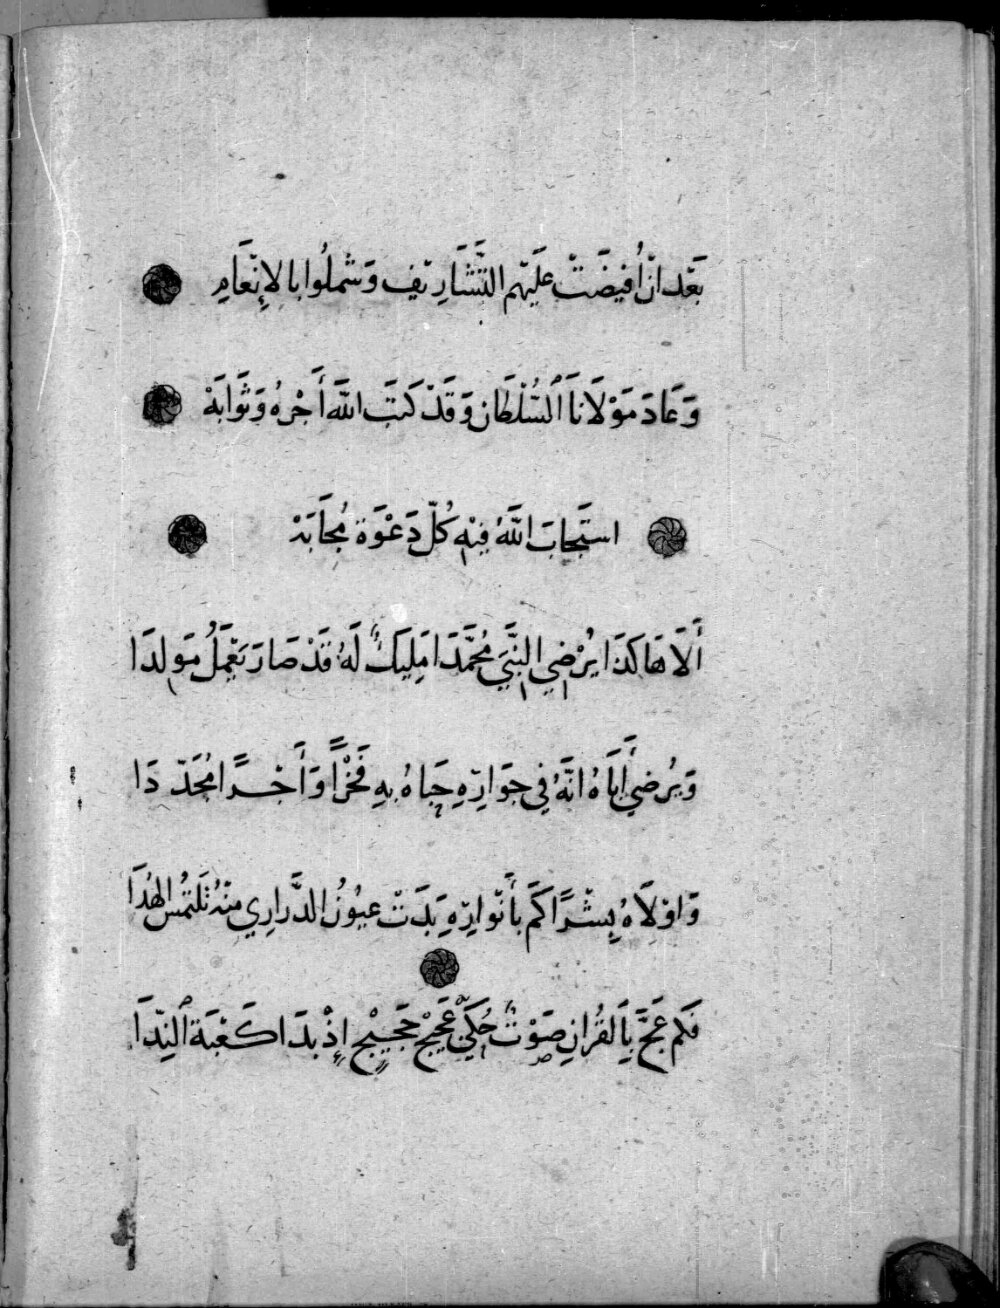 بَعْدَ انْ أُفيضَتْ عَلَيْهم التَّشَارِيْف وَشملُوا بالإِنْعَامِ
وَعَادَ مَوْلَانَا السُّلْطَان وَقَدْ كَتَبَ اللَّه أَجْرهُ وَثَوَابَهْ
استَجابَ اللَّهُ فِيْهِ كُلّ دَعْوَة مُجَابَهْ
أَلَا هَاكَذَا يُرْضِي النَّبِيَ مُحَمَّدَا مَلِيكٌ لَهُ قَدْ صَارَ يَعْمَلُ مَولِدَا
وَيُرْضي أَبَاهُ انَّهُ فِي جوَارِهِ حَبَاهُ بِهِ فَخْراً وَأَجْرًا مُجَدّدَا
وَاوْلَاهُ بِشْرًا كَمْ بأَنْوَارِهِ بَدَتْ عيُونُ الدَّرارِي منْهُ تَلتمُس الهُدَا
فكَم عَجَّ بِالقُرانِ صَوْتٌ حُكَيْ عَجِيْجْ حَجيْجٍ إِذْ بدَا كَعْبَة النِّدَا